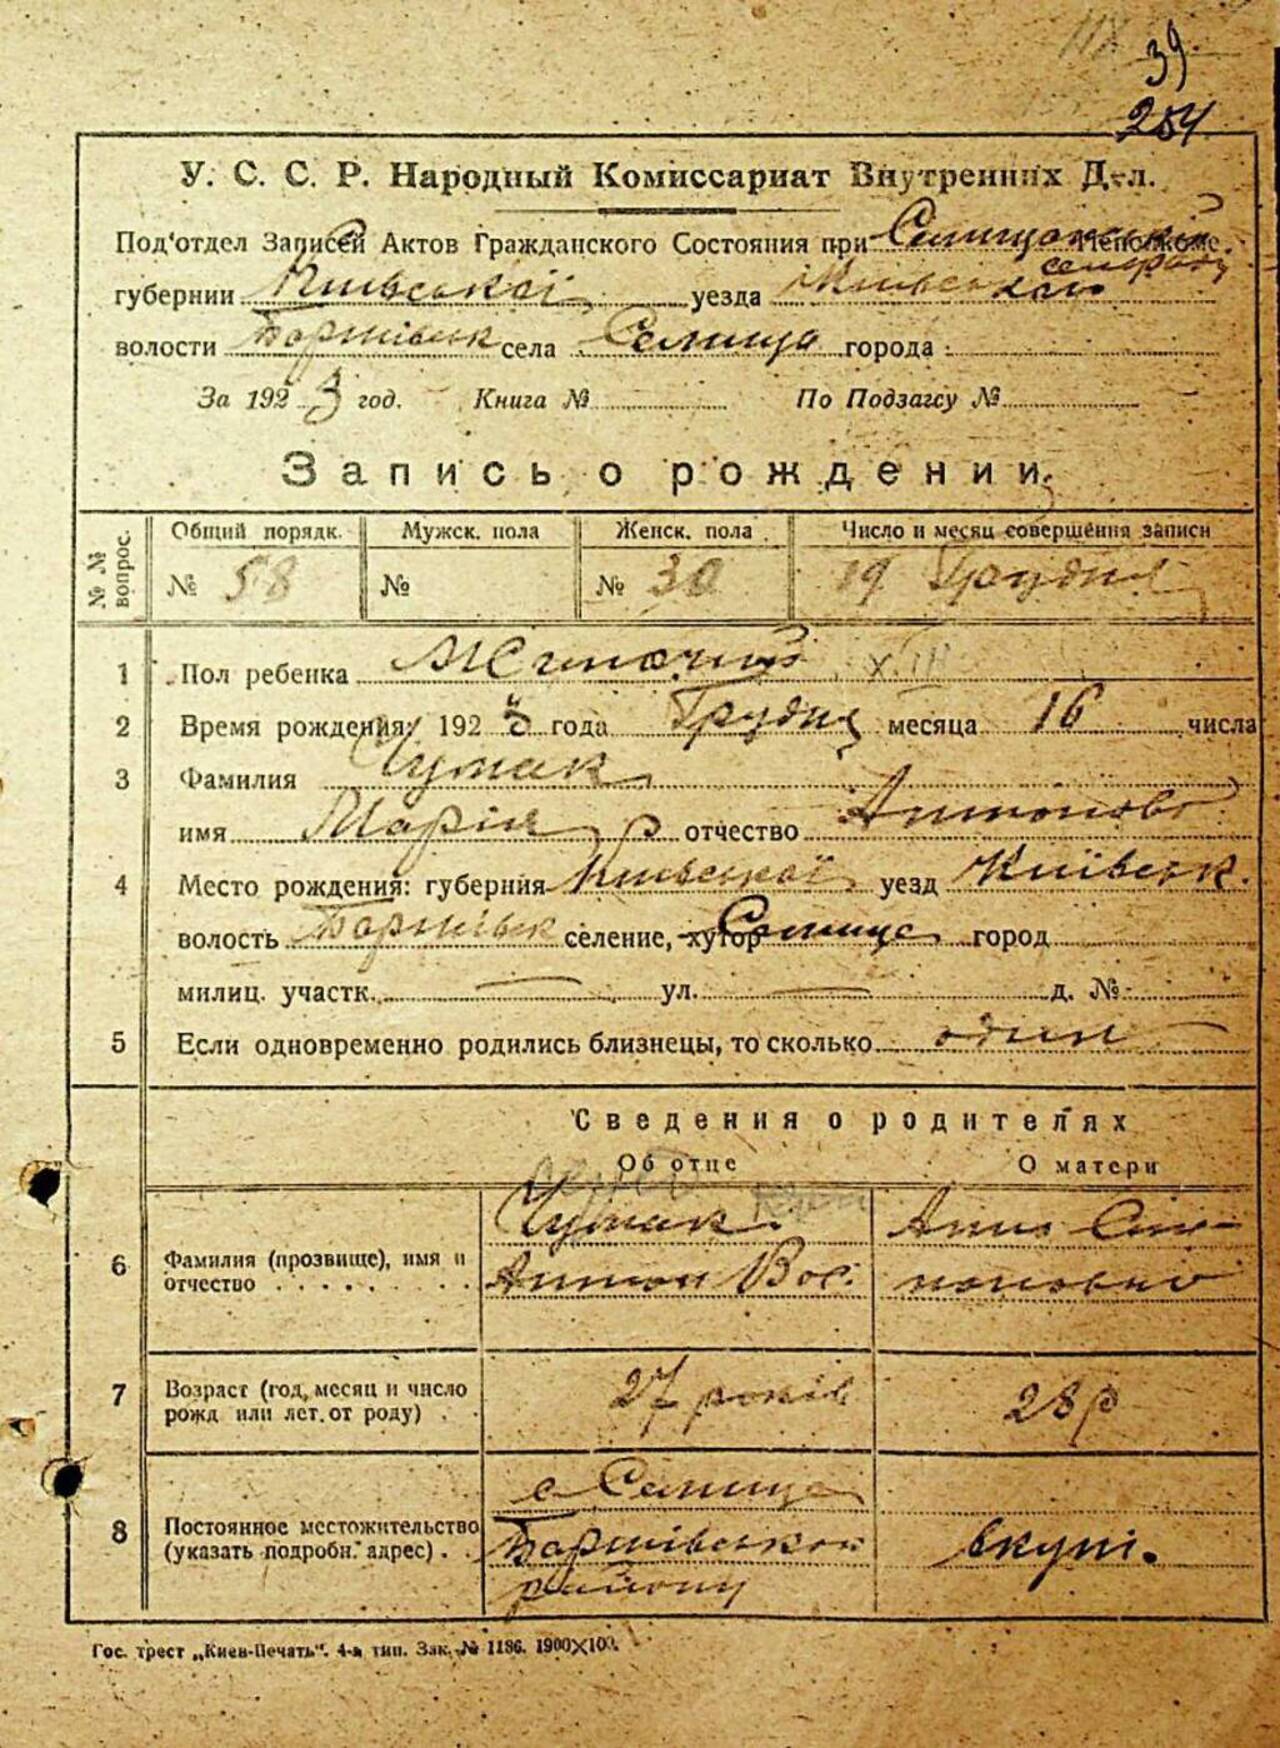 39
254
У. С. С. Р. Народный Комиссариат Внутренних Дел.
Под'отдел Записей Актов Гражданского Состояния при Селищанський Исполкоме.
сельраді
губернии Київської уезда Київського
волости Баришівськ села Селище города
За 1923 год. Книга № По Подзагсу №
Запись о рождении.
№ № вопрос. Общий порядк. Мужск. пола Женск. пола Число и месяц совершения записи
№ 58 № № 30 19 Грудня
1 Пол ребенка Жиночий XIII
2 Время рождения: 1923 года Грудня месяца 16 числа
3 Фамилия Чумак
имя Марія отчество Антонова
4 Место рождения: губерния Київської уезд Київськ.
волость Баришівськ селение, хутор Селище город
милиц. участк. — ул. — д. №
5 Если одновременно родились близнецы, то сколько один
Сведения о родителях
Об отце О матери
6 Фамилия (прозвище), имя и отчество . . . . . . Чумак Антон Вас. Анна Сте-
пановна
7 Возраст (год, месяц и число рожд или лет. от роду) . 27 років 28 р
8 Постоянное местожительство (указать подробн. адрес) . с Селище Баришівського району вкупі.
Гос. трест „Киев-Печать". 4-я тип. Зак. № 1186. 1900×100.